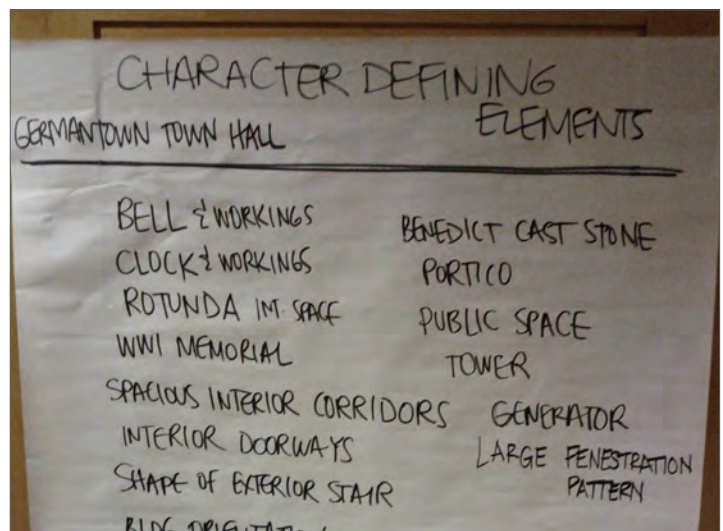 CHARACTER DEFINING
ELEMENTS
GERMANTOWN TOWN HALL
BELL & WORKINGS
CLOCK & WORKINGS
ROTUNDA INT. SPACE
WWI MEMORIAL
SPACIOUS INTERIOR CORRIDORS
INTERIOR DOORWAYS
SHAPE OF EXTERIOR STAIR
BLDG ORIENTATION
BENEDICT CAST STONE
PORTICO
PUBLIC SPACE
TOWER
GENERATOR
LARGE FENESTRATION
PATTERN